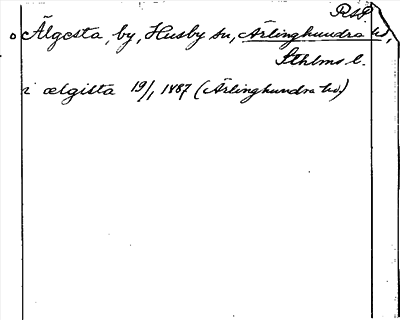 RAP
Älgesta, by, Husby sn, Ärlinghundra hd,
Sthlms l.
i ælgista 19/1 1887 (Ärlinghundra hd)